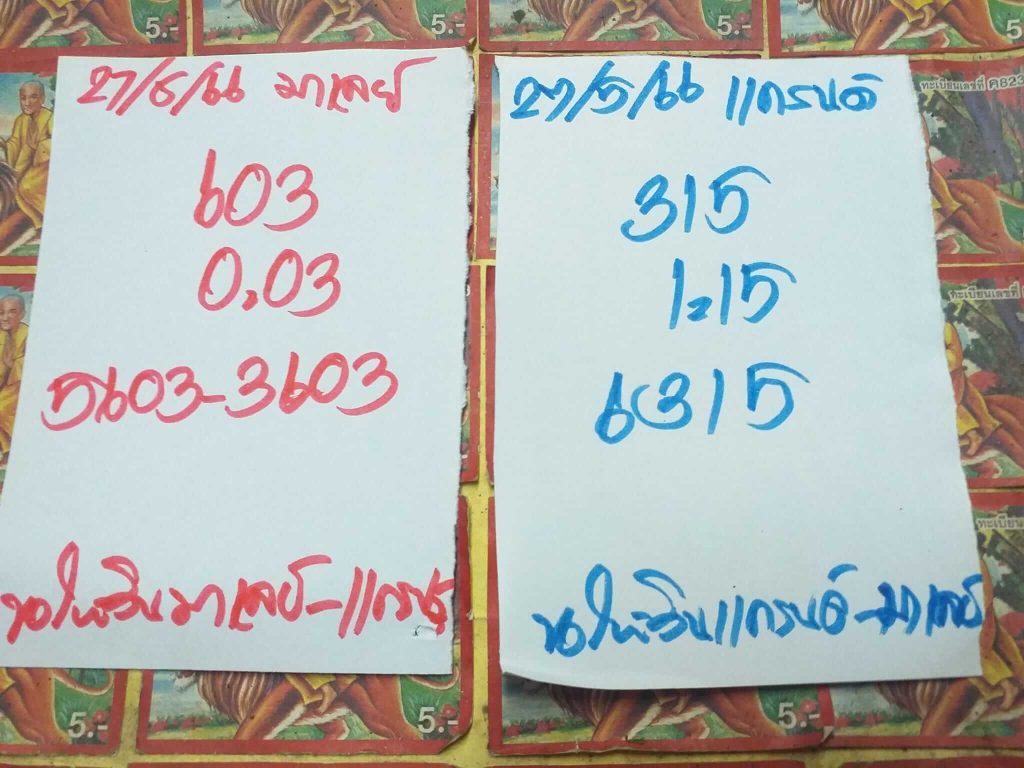 27/5/66 มาเลย์
603
0.03
5603-3603
ขอให้วินมาเลย์-แกรนด์
27/5/66 แกรนด์
315
1.15
6315
ขอให้วินแกรนด์-มาเลย์
5.-
5.-
5.-
5.-
ทะเบียนเลขที่ ค823
ทะเบียนเลขที่
ทะเบียน
5.-
5.-